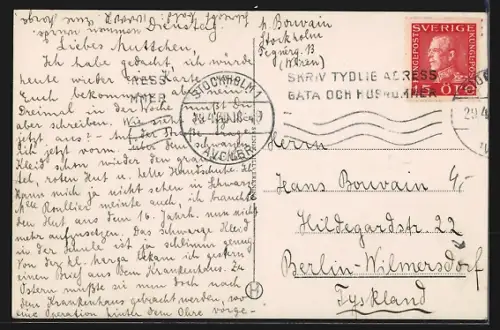 Dienstag
Liebes Muttchen,
Ich habe gedacht, ich würde
heute wieder Karte
Euch bekommen, aber
Dreimal in der Woche mußt Du
aber schreiben. Wie sieht
jetzt aus? - Auf der Straße trage
ich jetzt vorm. über dem schwarzen
Kleid schon wieder den grauen
tel, roten Hut u. helle Handschuhe. Ich
kann mich ja nicht schon in Schwarz
Mlle Roullier meinte auch, ich brauchte
den Hut aus dem 16. Jahrh. nun nicht
mehr aufzusetzen. Das schwarze Kleid
in der Schule ist ja schlimm genug
Von der kl. bekam ich gestern
einen Brief aus dem Krankenhaus. Zu
Ostern mußte sie man doch nach
dem Krankenhaus gebracht werden, wo
eine Operation hinter dem Ohre vorge-
nommen
H. Bouvain
Stockholm
Tegnérg. 13
SVERIGE
15 ÖRE
STOCKHOLM 1
AVD. LBR
RESS
MMER
SKRIV TYDLIG ADRESS
GATA OCH HUSNUMMER
29.4
Herrn
Hans Bouvain
Hildegardstr. 22
Berlin-Wilmersdorf
Tyskland